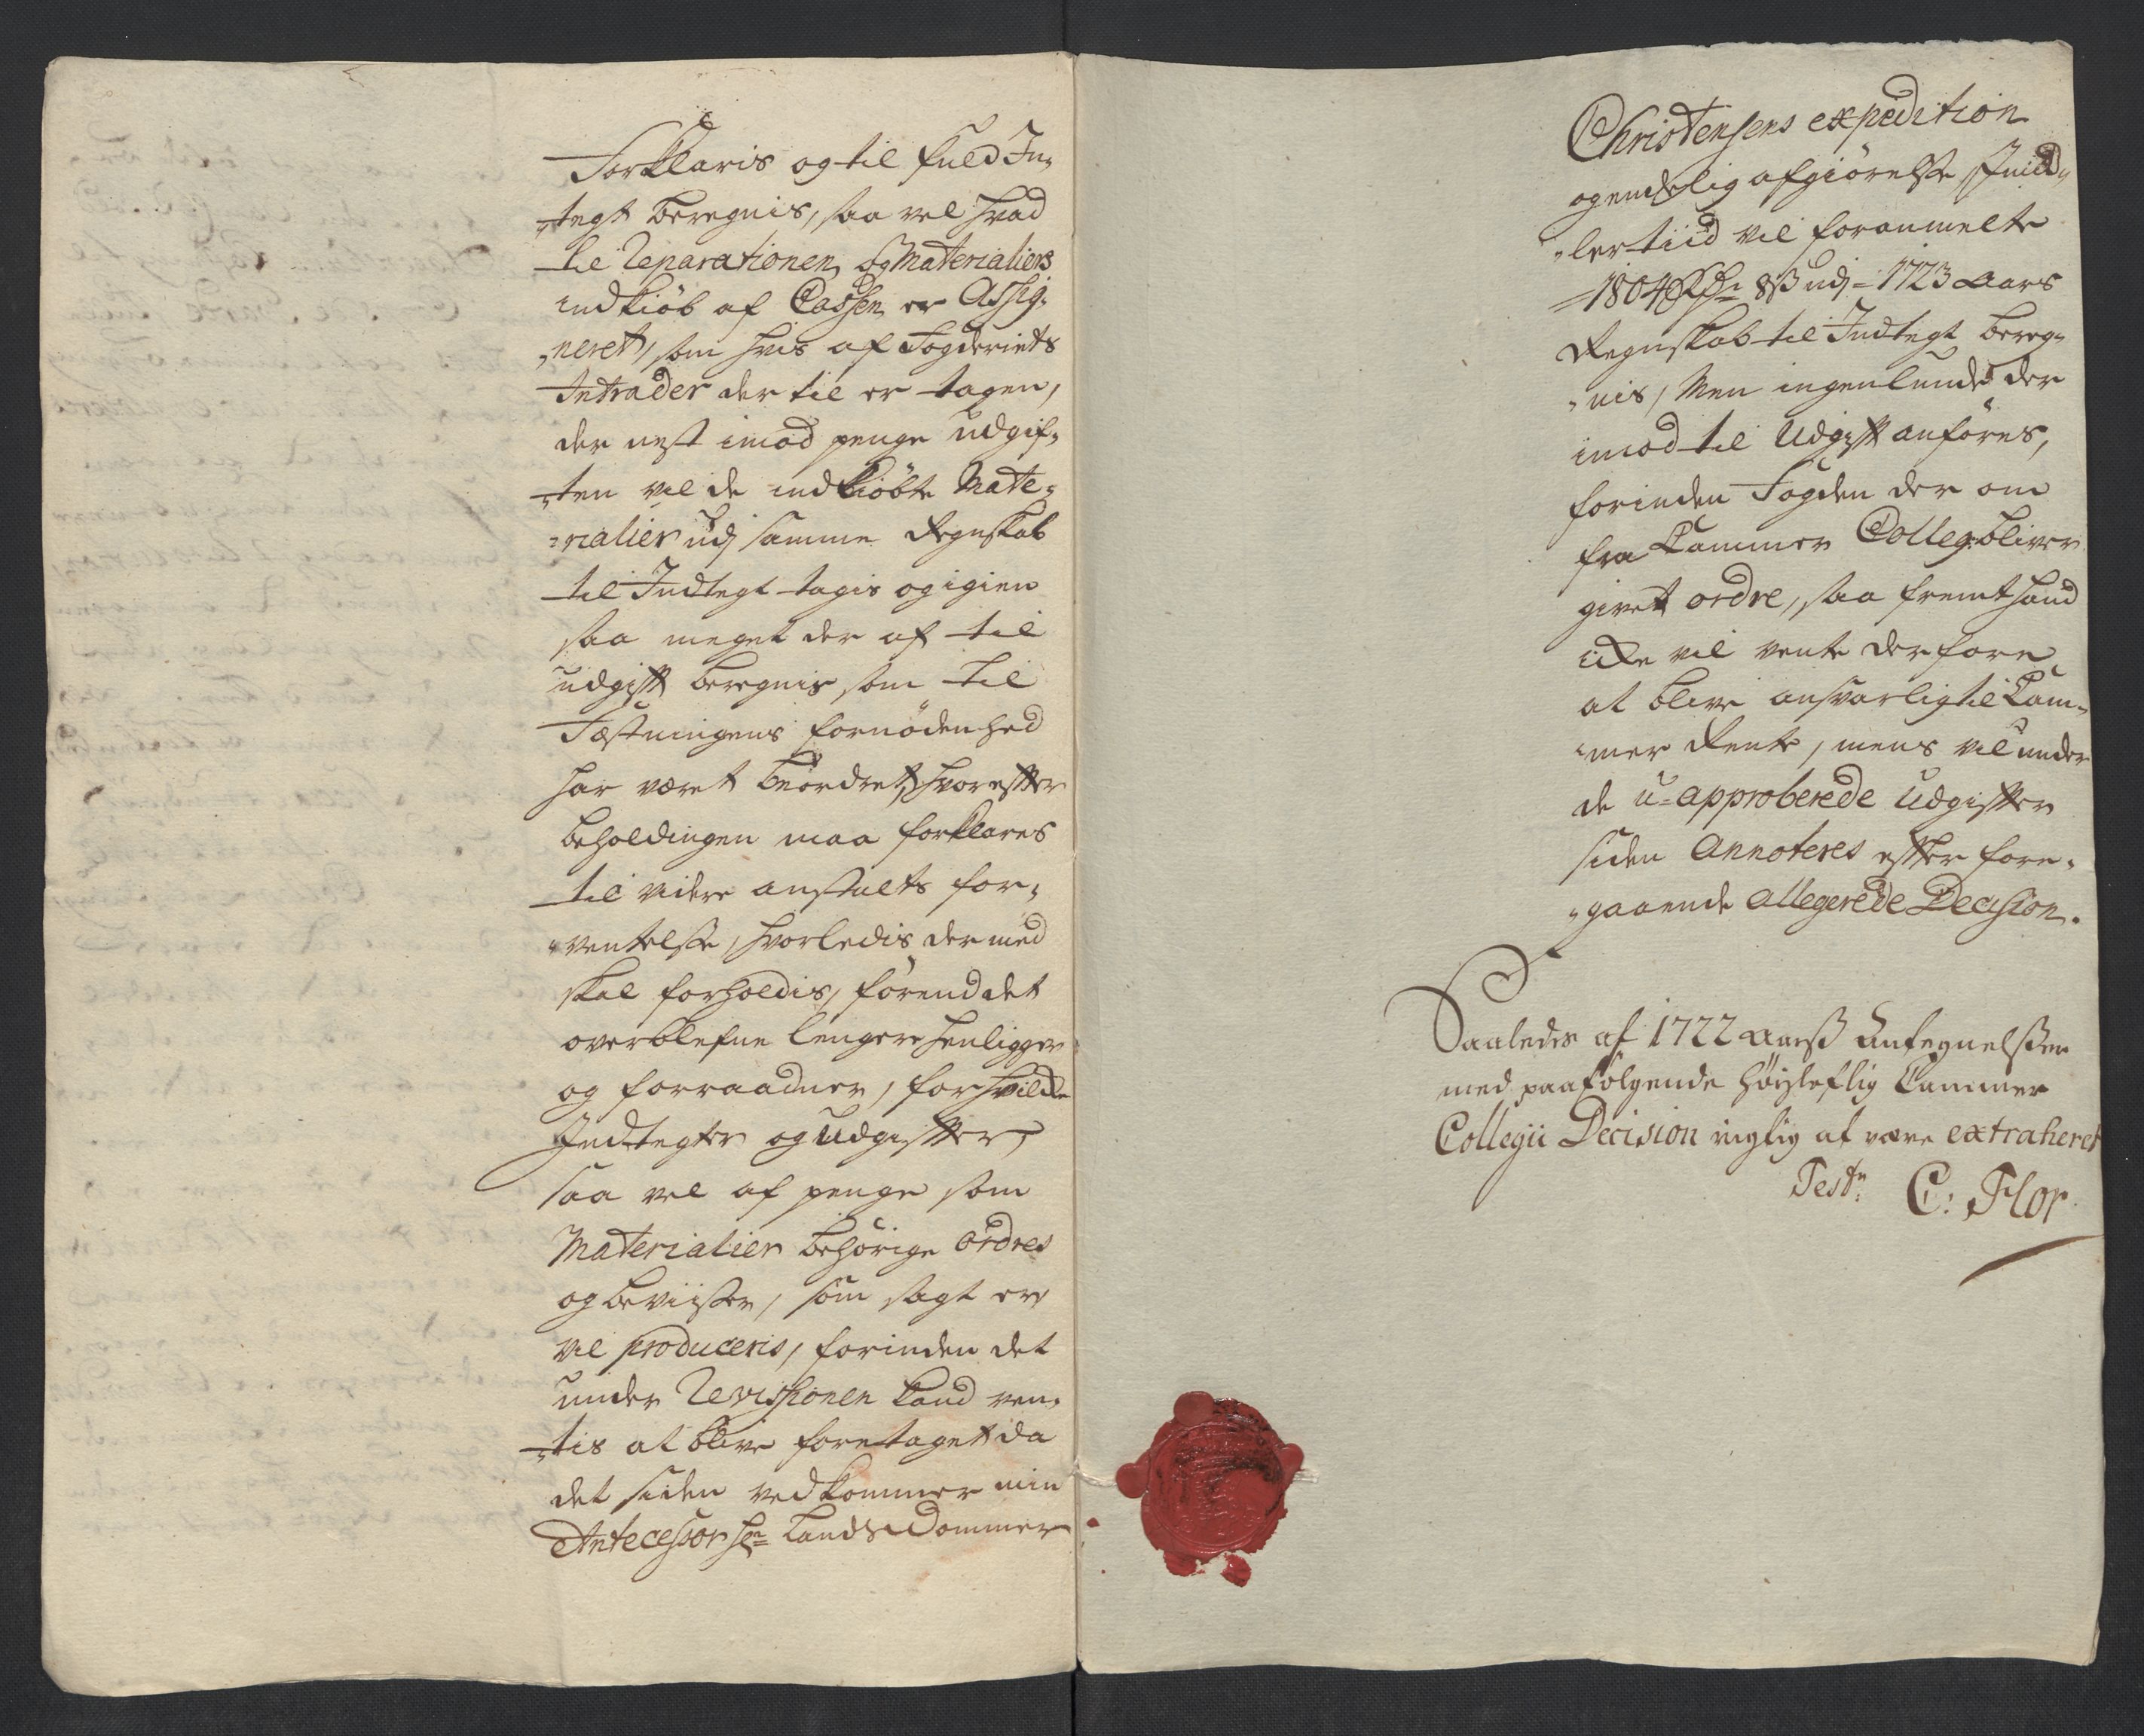 Forklaris og til fuld In-
-tegt beregnis, saa vel hvad
til Reparationen og Materialiers
indkiöb af Cassen er Assig-
-neret, som hvis af Fogderiets
Intrader der til er tagen,
der nest imod penge udgif-
-ten vil de indkiöbte Mate-
-rialier udj samme Regnskab
til Indtegt tagis og igien
saa meget der af til
udgift beregnis som til
Fæstningens fornödenhed
har været beordret, hvorefter
beholdingen maa forklares
til videre anstalts for-
-ventelse, hvorledis der med
skal forholdis, förend det
overblefne lengere henligger
og forraadner, for hvilke
Indtegter og Udgifter,
saa vel af penge som
Materialier behörige ordres
og beviiser, som sagt er,
vil produceris, forinden det
under Revissionen kand ven-
-tis at blive foretaget da
det siden vedkommer min
Antecessor Hr Lands Dommer
Christensens expedition
og endelig afgiörelse, Imid-
-lertiid vil foranmelte
1804 Rdr 8 ß udj 1723 Aars
Regnskab til Indtegt bereg-
-nis, Men ingenlunde der
imod til Udgift anföres,
forinden Fogden der om
fra Cammer Colleg: bliver
givet ordre, saa fremt hand
icke vil vente derfore
at blive ansvarlig til Cam-
-mer Rente, mens vil under
de u-approberede Udgifter
siden Annoteres efter fore-
-gaaende allegerede Decision.
Saaledes af 1722 Aarß Antegnelßer
med paafölgende höylofflig Cammer
Collegii Decision rigtig at være extraheret
Test: C: Flor